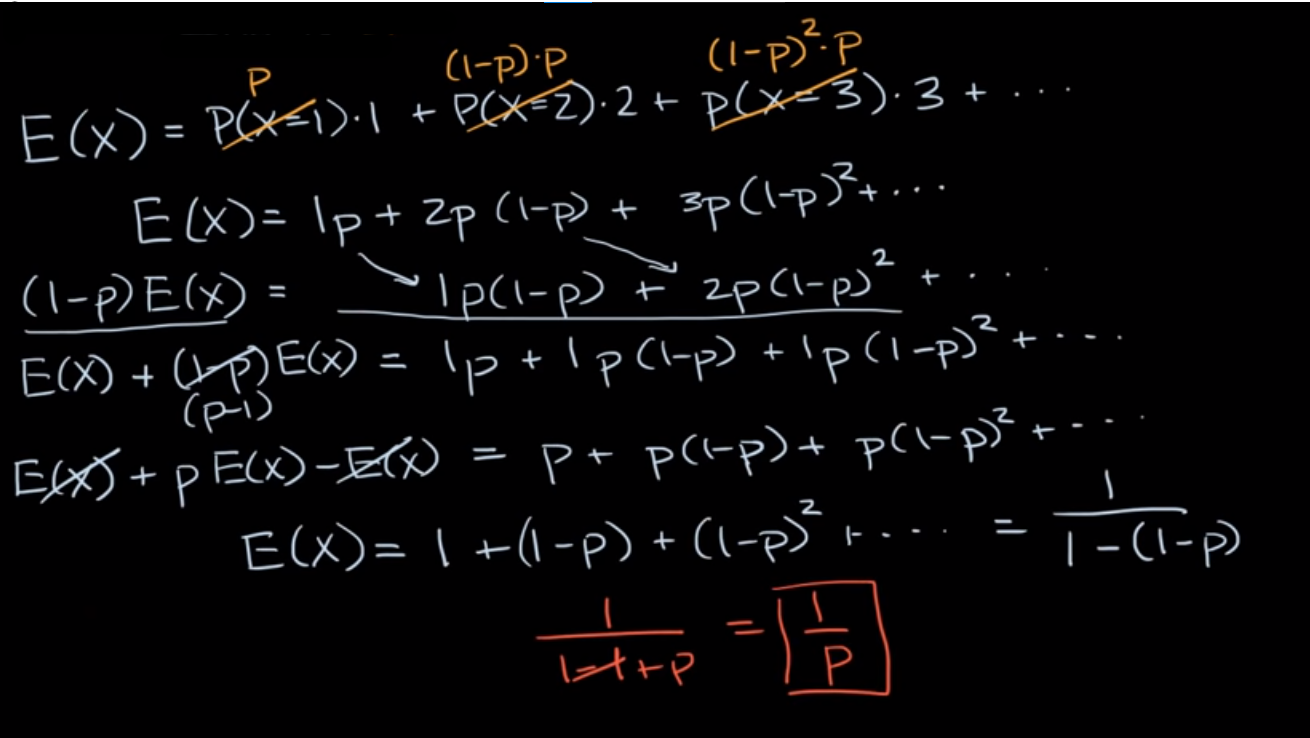 P (1-p)·P (1-p)²·P
E(X) = P(X=1)·1 + P(X=2)·2 + P(X=3)·3 + ···
E(X) = 1p + 2p (1-p) + 3p(1-p)² + ···
(1-p)E(X) = 1p(1-p) + 2p(1-p)² + ···
E(X) + (1-p)E(X) = 1p + 1p(1-p) + 1p(1-p)² + ···
(p-1)
E(X) + pE(X) - E(X) = p + p(1-p) + p(1-p)² + ···
E(X) = 1 + (1-p) + (1-p)² + ···· = 1/(1-(1-p))
1/(1-1+p) = 1/p